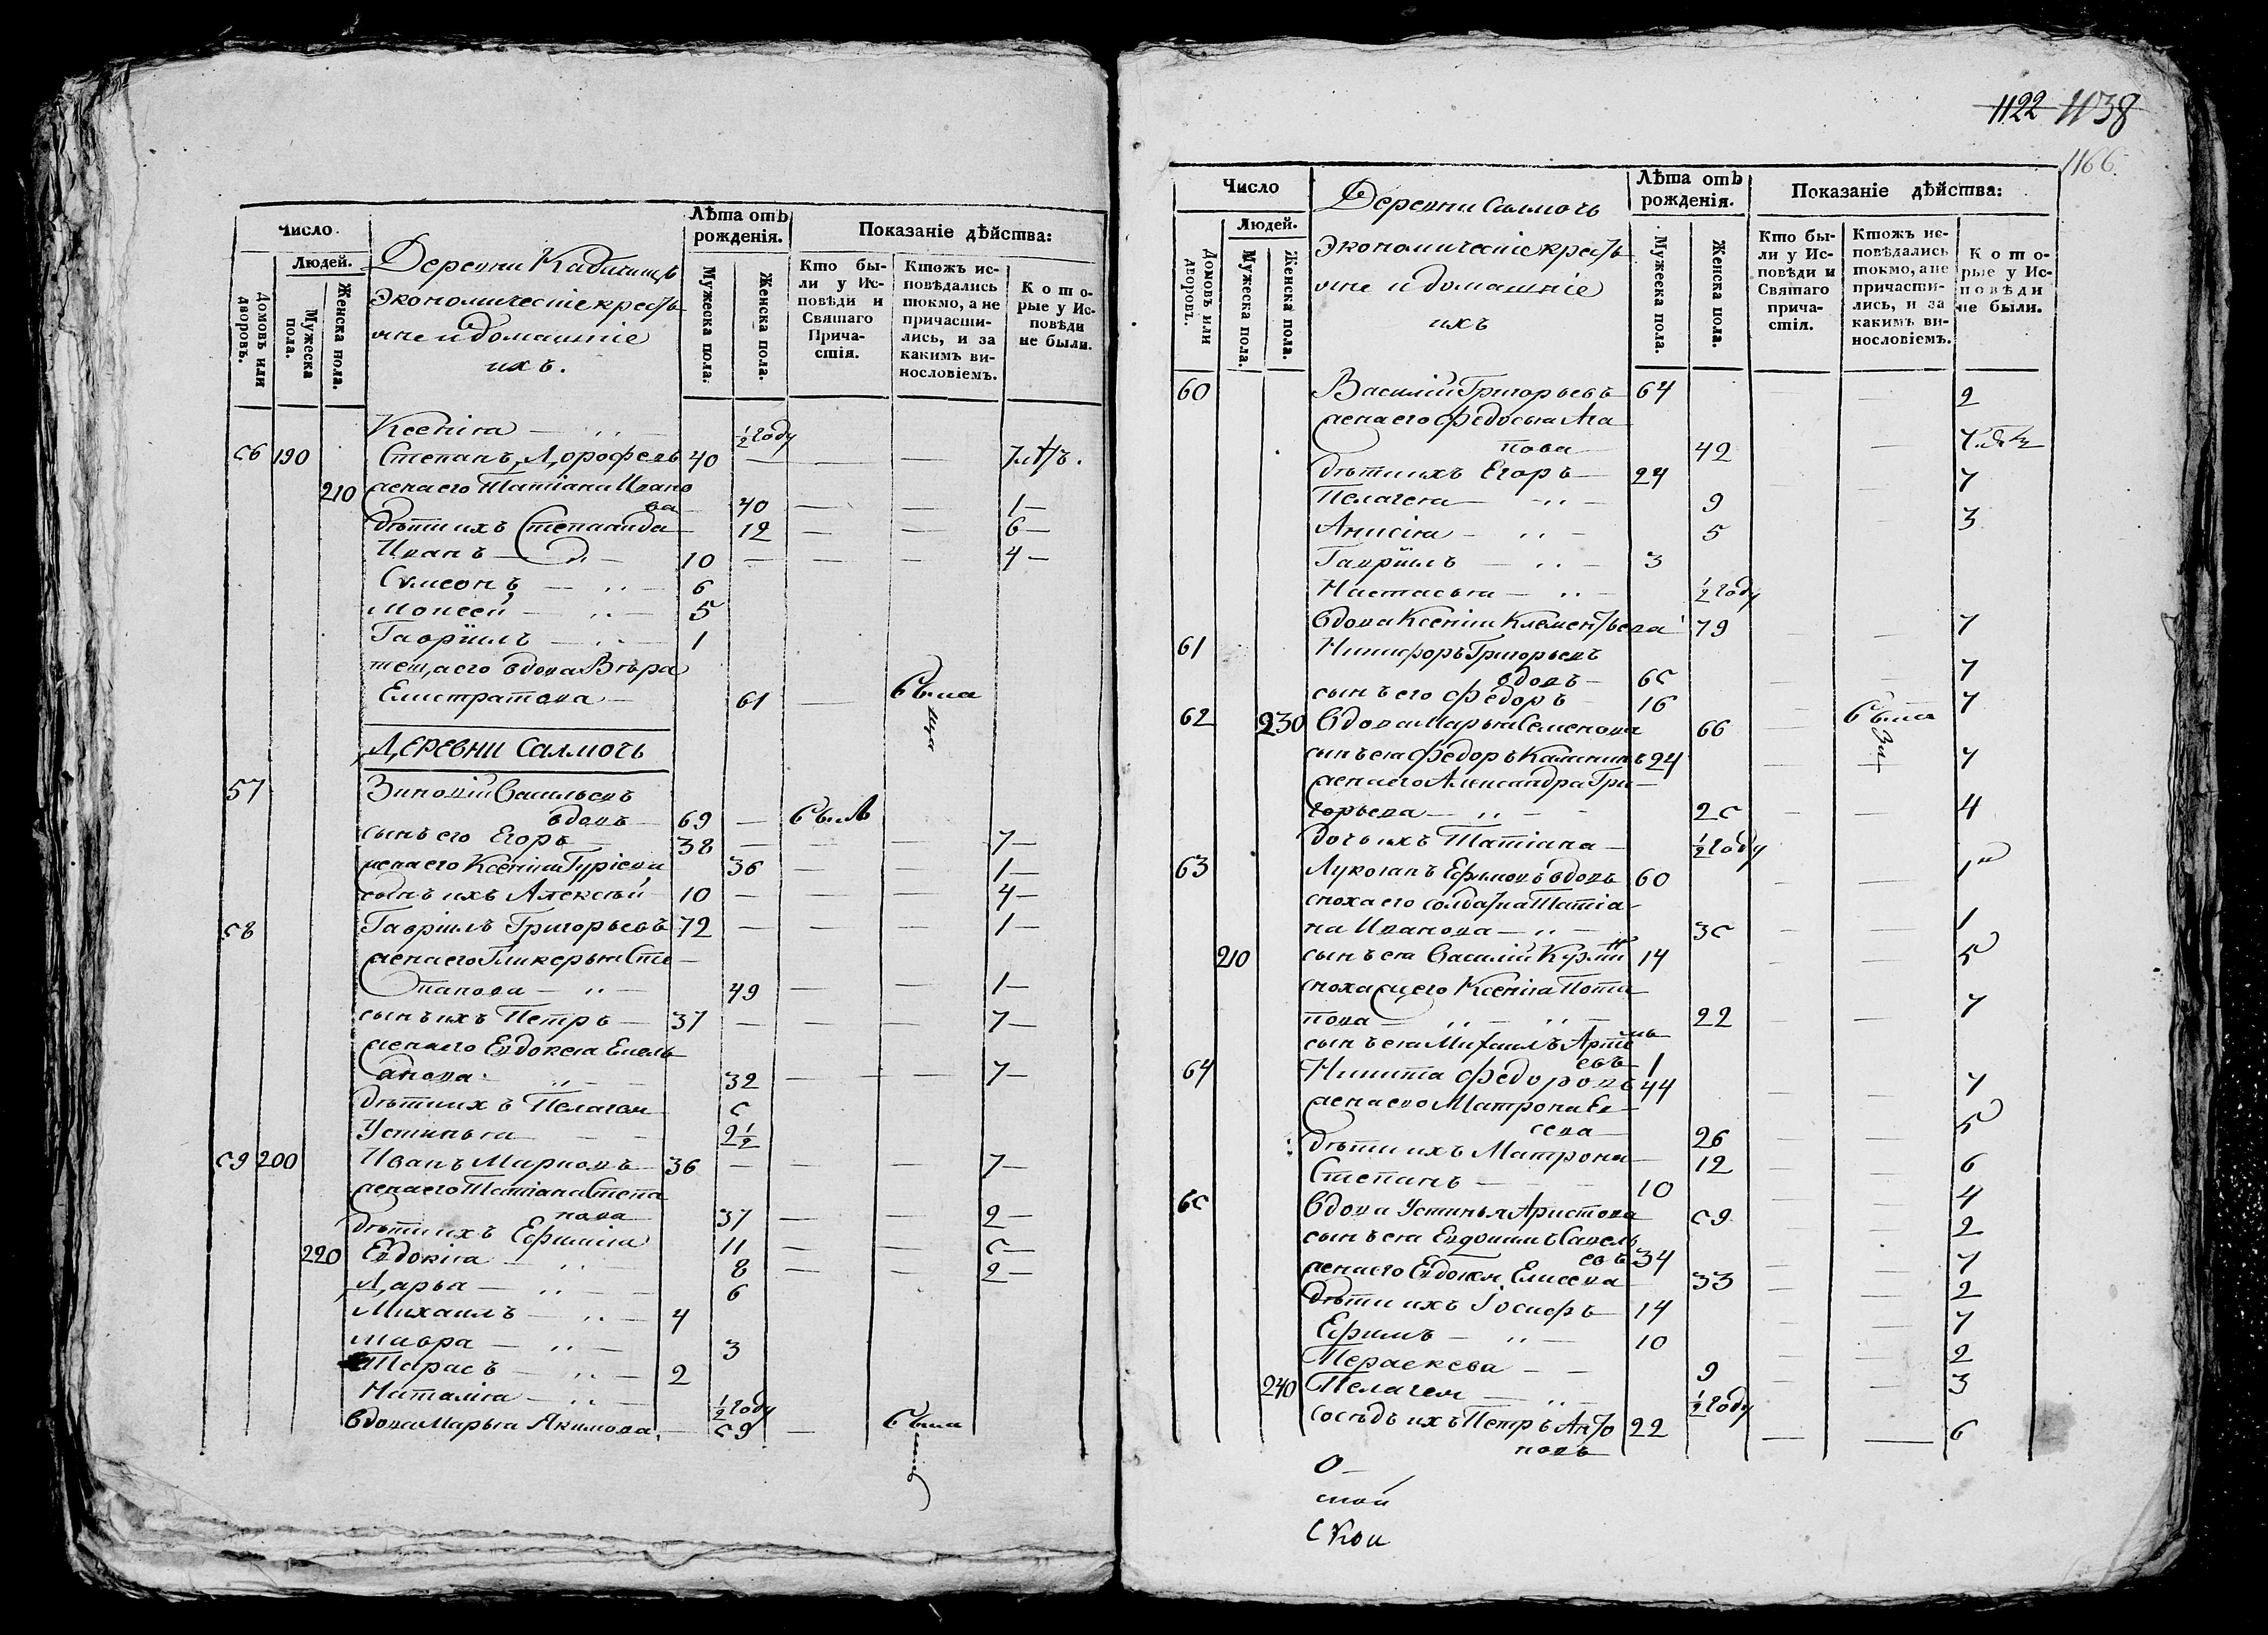 Число
Людей.
Домовъ или дворовъ.
Мужеска пола.
Женска пола.
Деревни Кадичищъ
Экономическіе кресть
яне и домашніе
ихъ.
Лѣта отъ рожденія.
Мужеска пола.
Женска пола.
Показаніе дѣйства:
Кто бы-
ли у Ис-
повѣди и
Святаго
Прича-
стія.
Ктожъ ис-
повѣдались
токмо, а не
причасти-
лись, и за
какимъ ви-
нословіемъ.
Кото-
рые у Ис-
повѣди
не были.
Ксенія — ½ году
56 190 Степанъ Дорофеевъ 40 — — — 7 лѣтъ.
210 жена его Татіана Ивано
ва — 40 — — 1 —
дѣти ихъ Степанида 12 — — 6 —
Иванъ — 10 — — — 4 —
Симеонъ — 6
Моисей — 5
Гавріилъ — 1
теща его вдова Вѣра
Елистратова — 61 — была
ДЕРЕВНИ САЛМОЧЬ
57 Зиновій Васильевъ
вдовъ — 69 — былъ
сынъ его Егоръ — 38 — — — 7 —
жена его Ксенія Гуріева 36 — — 1 —
сынъ ихъ Алексѣй 10 — — — 4 —
58 Гавріилъ Григорьевъ 72 — — — 1 —
жена его Гликерья Сте —
панова — 49 — — 1 —
сынъ ихъ Петръ — 37 — — — 7 —
жена его Евдокея Емель
анова — 32 — — 7 —
дѣти ихъ Пелагея 5
Устинья — 2½
59 200 Иванъ Марковъ 36 — — — 7 —
жена его Татіана Степа
нова 37 — — 2 —
дѣти ихъ Ефимія 11 — — 5 —
220 Евдокія 8 — — 2 —
Дарья — 6
Михаилъ — 4
Мавра — 3
Тарасъ — 2
Наталія — ½ году
вдова Марья Якимова — 59 — была
1122 1138
1166
Число
Людей.
Домовъ или дворовъ.
Мужеска пола.
Женска пола.
Деревни Салмочь
Экономическіе кресть
яне и домашніе
ихъ
Лѣта отъ рожденія.
Мужеска пола.
Женска пола.
Показаніе дѣйства:
Кто бы-
ли у Ис-
повѣди и
Святаго
прича-
стія.
Ктожъ ис-
повѣдались
токмо, а не
причасти-
лись, и за
какимъ ви-
нословіемъ.
Кото-
рые у Ис-
повѣди
не были.
60 Василій Григорьевъ 64 — — 2
жена его Федосья Ага
пова 42 — 7
дѣти ихъ Егоръ — 24 — — 7
Пелагея — 9 — 3
Анисія — 5
Гавріилъ — 3
Настасья — ½ году
вдова Ксенія Клементьева 79 — — 7
61 Никифоръ Григорьевъ
вдовъ — 65 — — 7
сынъ его Федоръ — 16 — 7
62 230 вдова Марья Семенова 66 — была
сынъ ея Федоръ Калининъ 24 — — 7
жена его Александра Гри —
горьева — 25 — — 4
дочь ихъ Татіана — ½ году
63 Лукоянъ Ефимовъ вдовъ 60 — — 1
сноха его солдатка Татіа-
на Иванова — 35 — — 1
210 сынъ ея Василій 14 — — 5
сноха его Ксенія Пота
пова — 22 — 7
сынъ ея Михаилъ Артемь
евъ 1
64 Никита Федоровъ 44 — — 7
жена его Матрона Ев —
сева 26 — — 5
дѣти ихъ Матрона — 12 — — 6
Степанъ — 10 — — 4
65 вдова Устинья Аристова 59 — — 2
сынъ ея Евдокимъ Савель
евъ 34 — — 7
жена его Евдокея Елисеева 33 — — 2
дѣти ихъ Іосифъ — 14 — — 7
Ефимъ — 10 — — 2
Параскева — 9 — — 3
240 Пелагея — ½ году
сосѣдъ ихъ Петръ Анто 22 — — 6
новъ
о —
ской